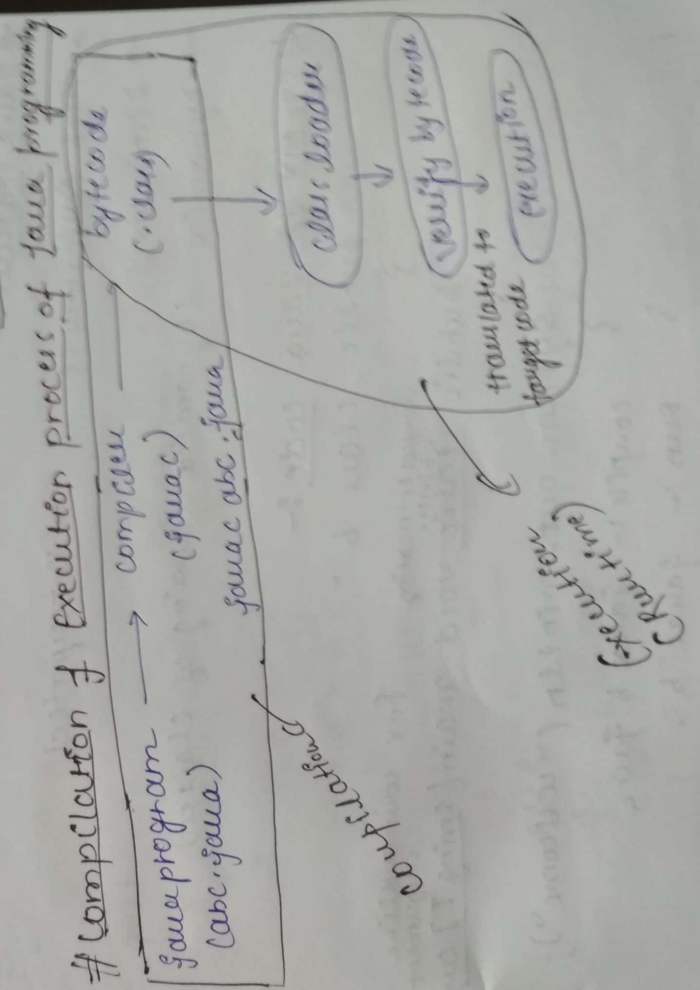 # Compilation & Execution process of Java programming
Java program → compiler → bytecode
(abc.java) (javac) (.class)
javac abc.java
class loader
verify bytecode
translated to
target code
execution
compilation
Execution
(Runtime)